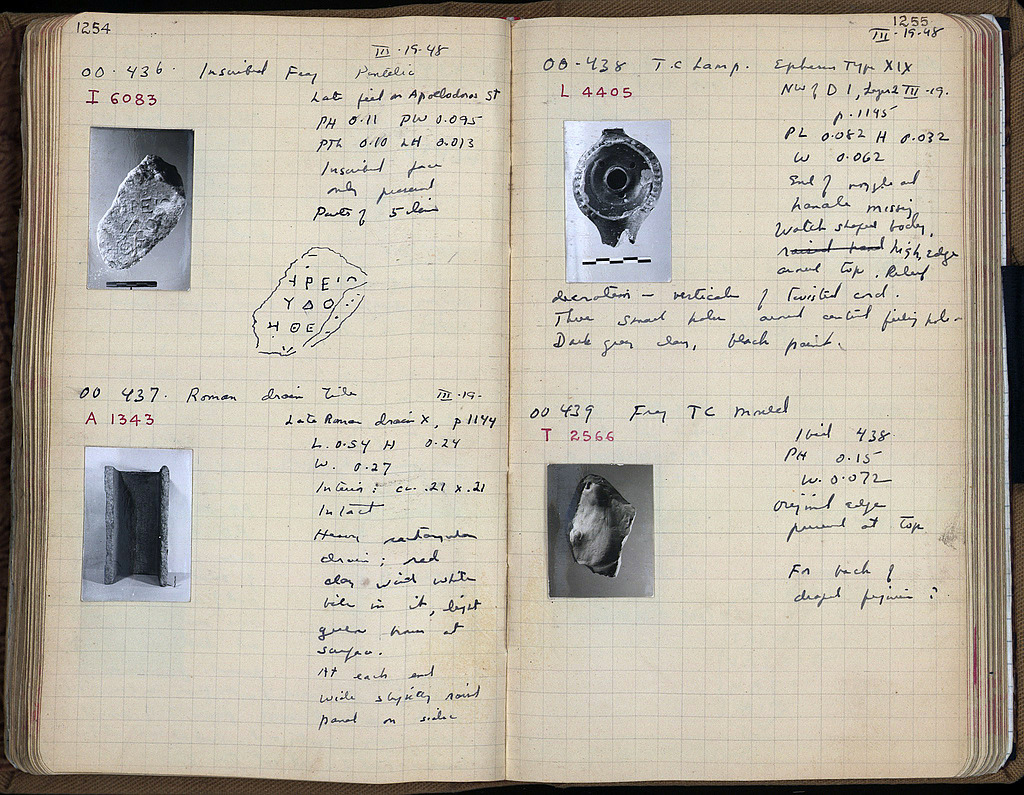 1254
III·19·48
OO·436· Inscribed Frag Pentelic
I 6083
Late fill on Apollodoros St
PH 0.11 PW 0.095
PTh 0.10 LH 0.013
Inscribed face
only preserved
Parts of 5 lines
ΡΕ
Υ Δ Ο
Η Θ Ε
OO 437. Roman drain tile III·19·
A 1343
Late Roman drain X, p 1144
L. 0.54 H 0.24
W. 0.27
Interior: ca. .21 x .21
Intact
Heavy rectangular
drain; red
clay with white
bits in it, light
green brown at
surface.
At each end
wide slightly raised
panel on sides
1255
III·19·48
OO·438 T.C Lamp. Ephesus Type XIX
L 4405
NW of D 1, Layer 2 III·19·
p. 1145
PL 0.082 H 0.032
W 0.062
End of nozzle and
handle missing
Watch shaped body,
raised band high, edge
around top. Relief
decoration — verticals of twisted cord.
Three small holes around central filling hole
Dark grey clay, black paint.
OO 439 Frag TC mould
T 2566
Ibid 438
PH 0.15
W. 0.072
Original edge
preserved at top
For back of
draped figurine?